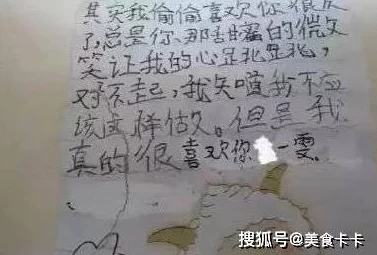 其实我偷偷喜欢你很久
了,总是你那甜甜的微
笑让我的心
对不起,我知道我不应
该这样做。但是我
真的很喜欢你 一雯
搜狐号@美食卡卡